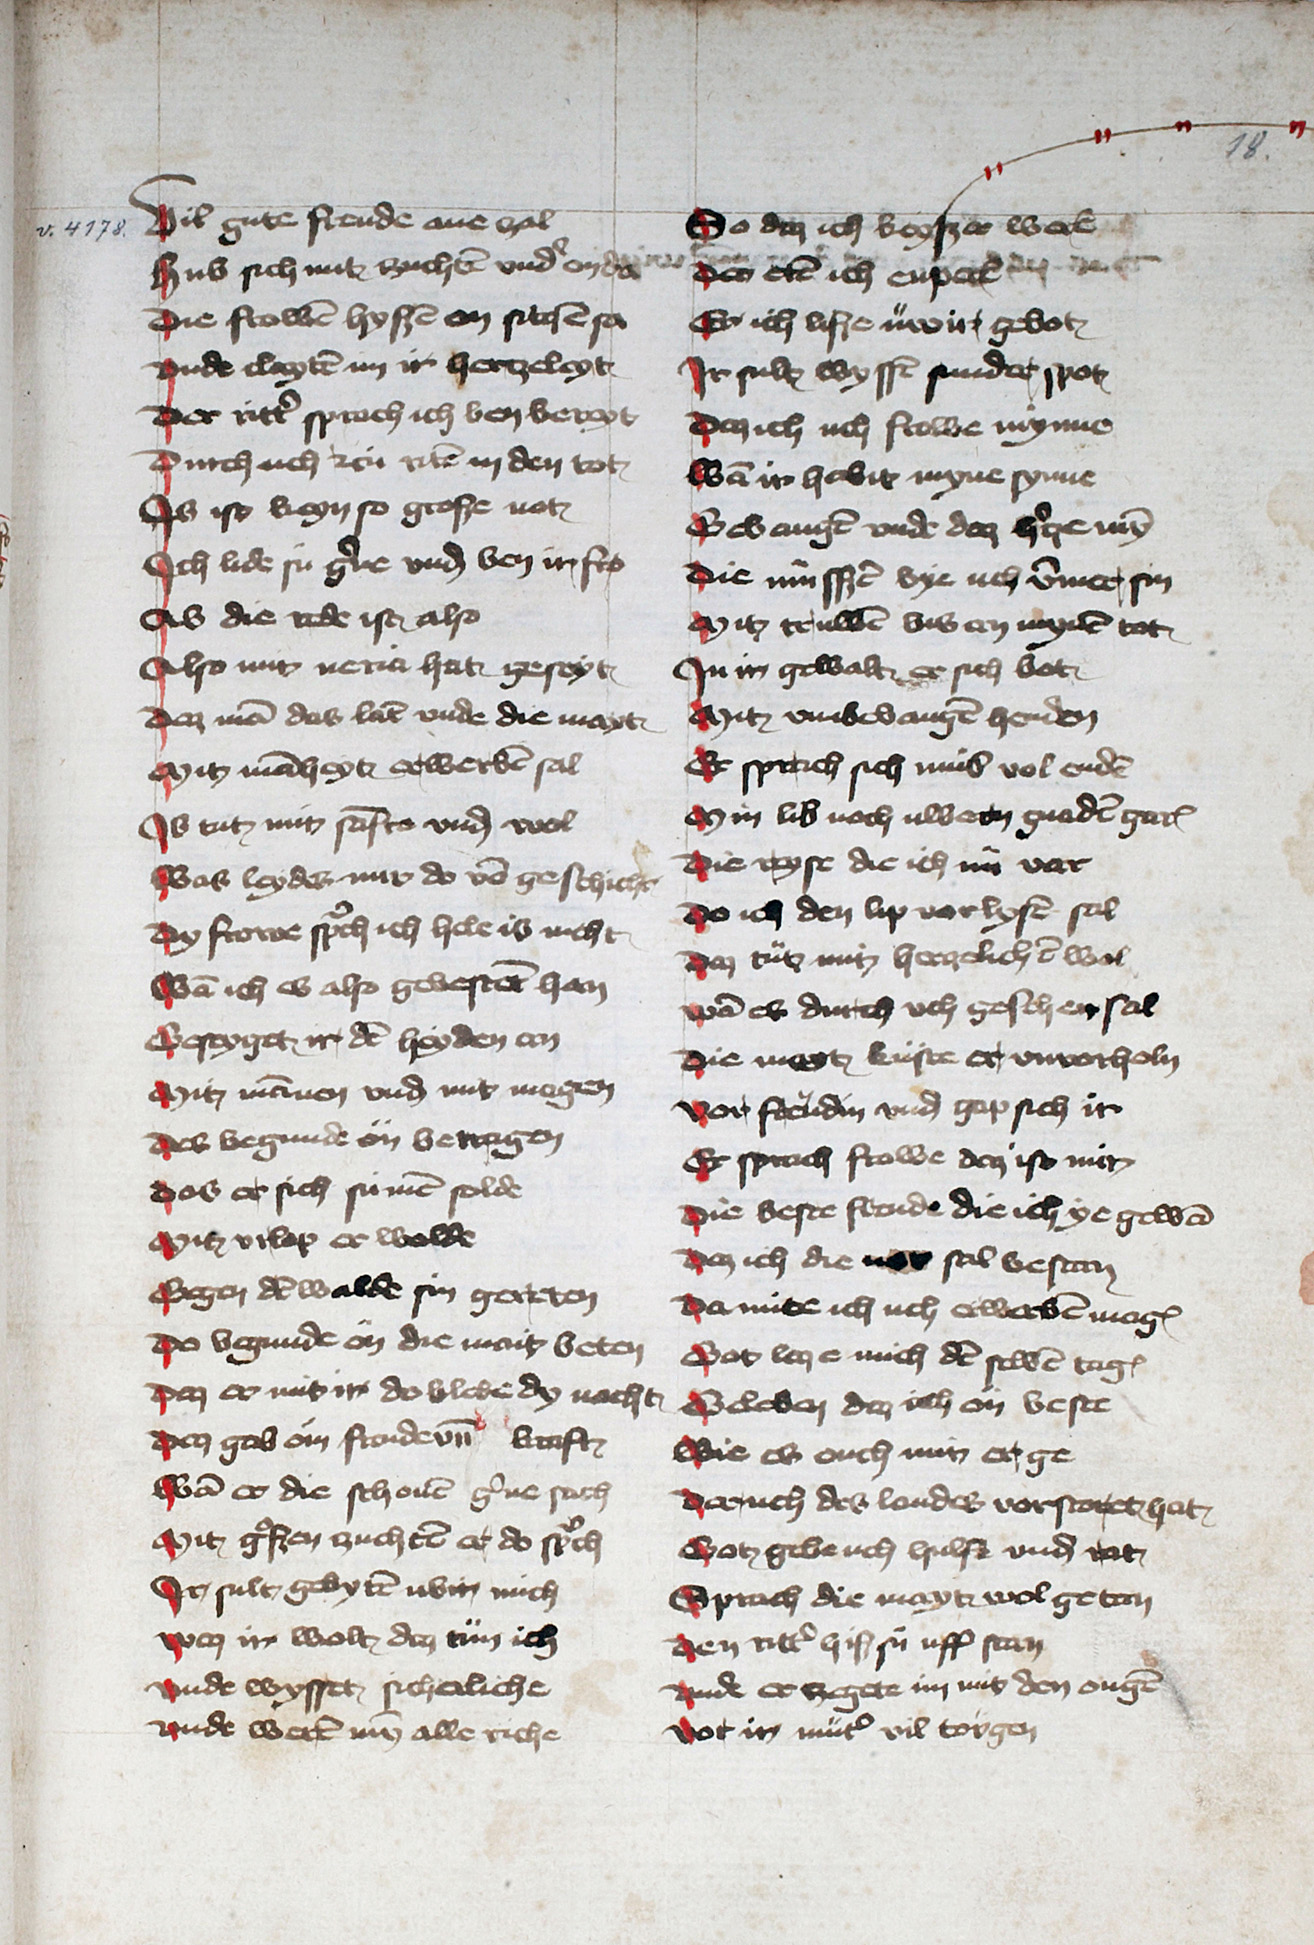 18.
v. 4178.
Vil gute freude ane zal
Hub sich mit zuchtē vnd' en da
Die frowē hyszē en sitzē sa
vnde clagtē im ir hertzeleyt
Der ritt' sprach ich ben bereyt
Durch uch zcu ritē in den tot
Is ist keyn so grosze not
Ich lide sü g'ne vnd ben ir fro
Ab die rede ist also
Also mir neria hat geseyt
Daz mā das lāt vnde die mayt
Mit māheyt erwerbē sal
Is tut mir sāfte vnd wol
Was leydes mir do vō geschicht
Dy frowe sprach ich hele is nicht
Wā ich es also gevestēt han
Gesyget ir dē heyden an
Mit mānen vnd mit magen
Des begunde ön betragen
Das er sich sümē solde
Mit vrlop er wolde
Gegen dē walde sin gereten
Do begunde ön die mait beten
Daz er mit ir do blebe dy nacht
Daz gab öm freude vn̄ kraft
Wā er die schonē g'ne sach
Mit g'szen zuchtē er do sprach
Ir sult gebytē ubir mich
waz ir wolt daz tün ich
vnde wysset sicherliche
vnde werē my alle riche
So daz ich keyszer were
Der erē ich enpere
Er ich lisze üwir gebot
Ir sult wyssē sunder spot
Daz ich uch frowe mynne
Wā ir habit myne synne
Gevangē vnde daz h'tze my
Die müsszē bye uch ȳmer sin
Mit truwē bis an mynē tot
In ir gewalt er sich bot
Mit vmbevangē henden
Er sprach sich müs vol endē
Min lib noch uwern gnadē gar
Die reyse die ich nü var
Do ich den lip vorlysē sal
Daz tüt mir herzelichē wol
wā es durch uch geschen sal
Die mayt küste er vnvorholn
Vor freüdin vnd gap sich ir
Er sprach frowe daz ist mir
Die beste freude die ich ye gewā
Daz ich die sal bestan
Da mite ich uch erwerbē mag
Got laze mich dē selbē tag
Geleben daz ich ön beste
Wie es ouch mir erge
Der uch des landes vorstoret hat
Got gebe uch hulfe vnd rat
Sprach die mayt wol getan
Den ritt' hisz sü uff stan
vnde erzegete im mit den ougē
vor ir müt' vil tovgen